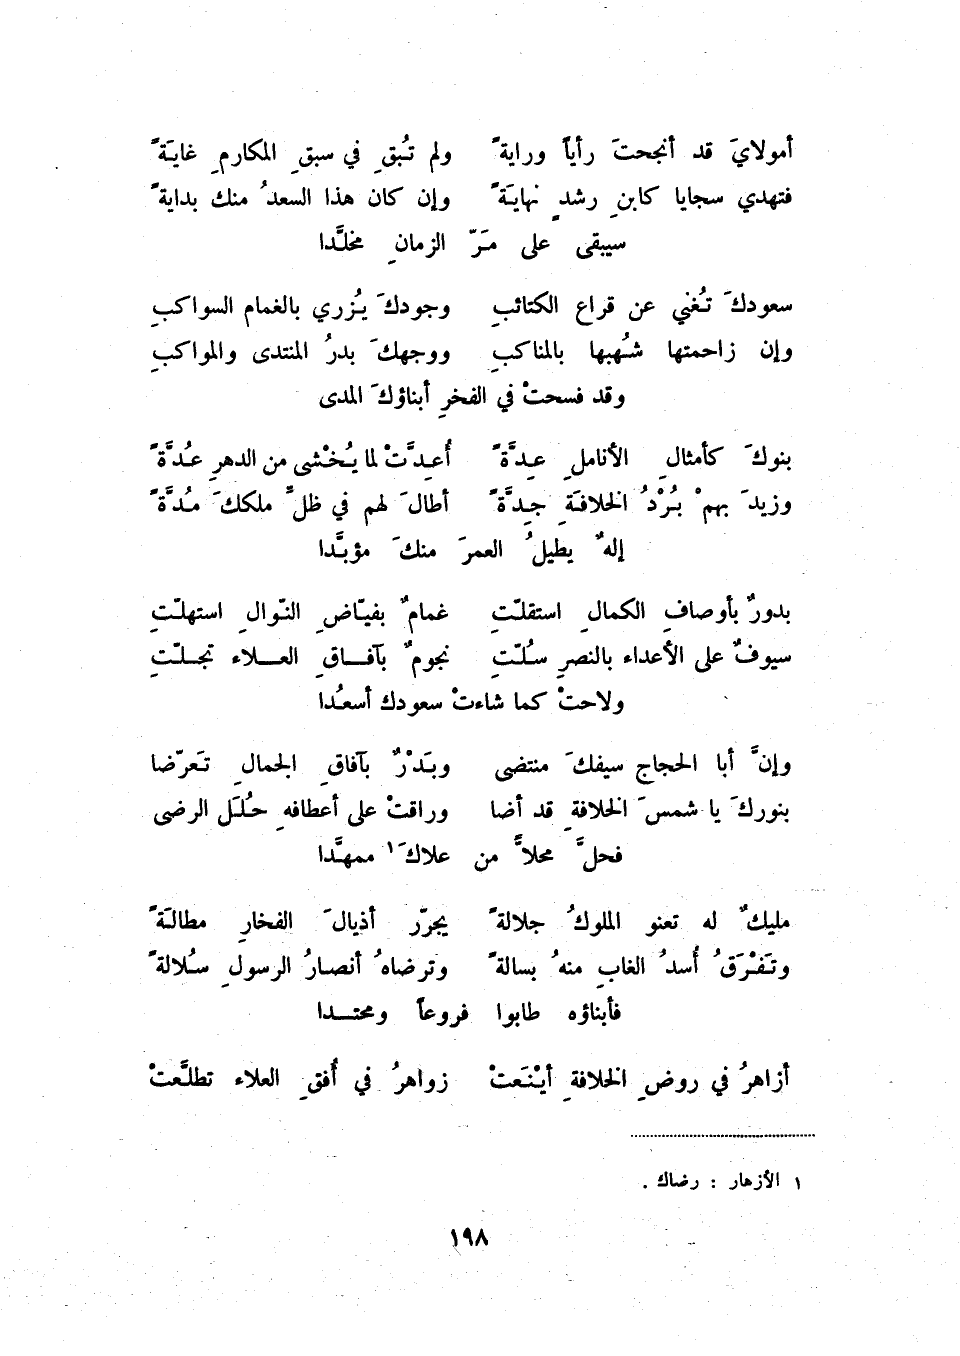 أمولايَ قد أنجحتَ رأياً ورايةً ولم تُبقِ في سبقِ المكارمِ غايَةً
فتهدي سجايا كابنِ رشدٍ نهايَةً وإن كان هذا السعدُ منك بدايةً
سيبقى على مَرّ الزمانِ مخلَّدا
سعودكَ تُغني عن قراع الكتائبِ وجودكَ يُزري بالغمام السواكبِ
وإن زاحمتها شُهبها بالمناكبِ ووجهكَ بدرُ المنتدى والمواكبِ
وقد فسحتْ في الفخرِ أبناؤكَ المدى
بنوكَ كأمثالِ الأناملِ عِدَّةً أُعِدَّتْ لما يُخْشى من الدهرِ عُدَّةً
وزيدَ بهمْ بُرْدُ الخلافَةِ جِدَّةً أطالَ لهم في ظلِّ ملككَ مُدَّةً
إلهٌ يطيلُ العمرَ منكَ مؤبَّدا
بدورٌ بأوصافِ الكمالِ استقلّتِ غمامٌ بفيّاضِ النّوالِ استهلّتِ
سيوفٌ على الأعداء بالنصرِ سُلّتِ نجومٌ بآفاقِ العلاء تجلّتِ
ولاحتْ كما شاءتْ سعودك أسعُدا
وإنَّ أبا الحجاجِ سيفكَ منتضى وبَدْرٌ بآفاقِ الجمالِ تعَرّضا
بنوركَ يا شمسَ الخلافةِ قد أضا وراقتْ على أعطافهِ حُلَل الرضى
فحلَّ محلاًّ من علاكَ١ ممهَّدا
مليكٌ له تعنو الملوكُ جلالةً يجرّر أذيالَ الفخارِ مطالَةً
وتَفْرَقُ أُسدُ الغابِ منهُ بسالةً وترضاهُ أنصارُ الرسولِ سُلالةً
فأبناؤه طابوا فروعاً ومحتدا
أزاهرُ في روضِ الخلافةِ أيْنَعتْ زواهرُ في أُفقِ العلاء تطلَّعتْ
١ الأزهار : رضاك .
١٩٨